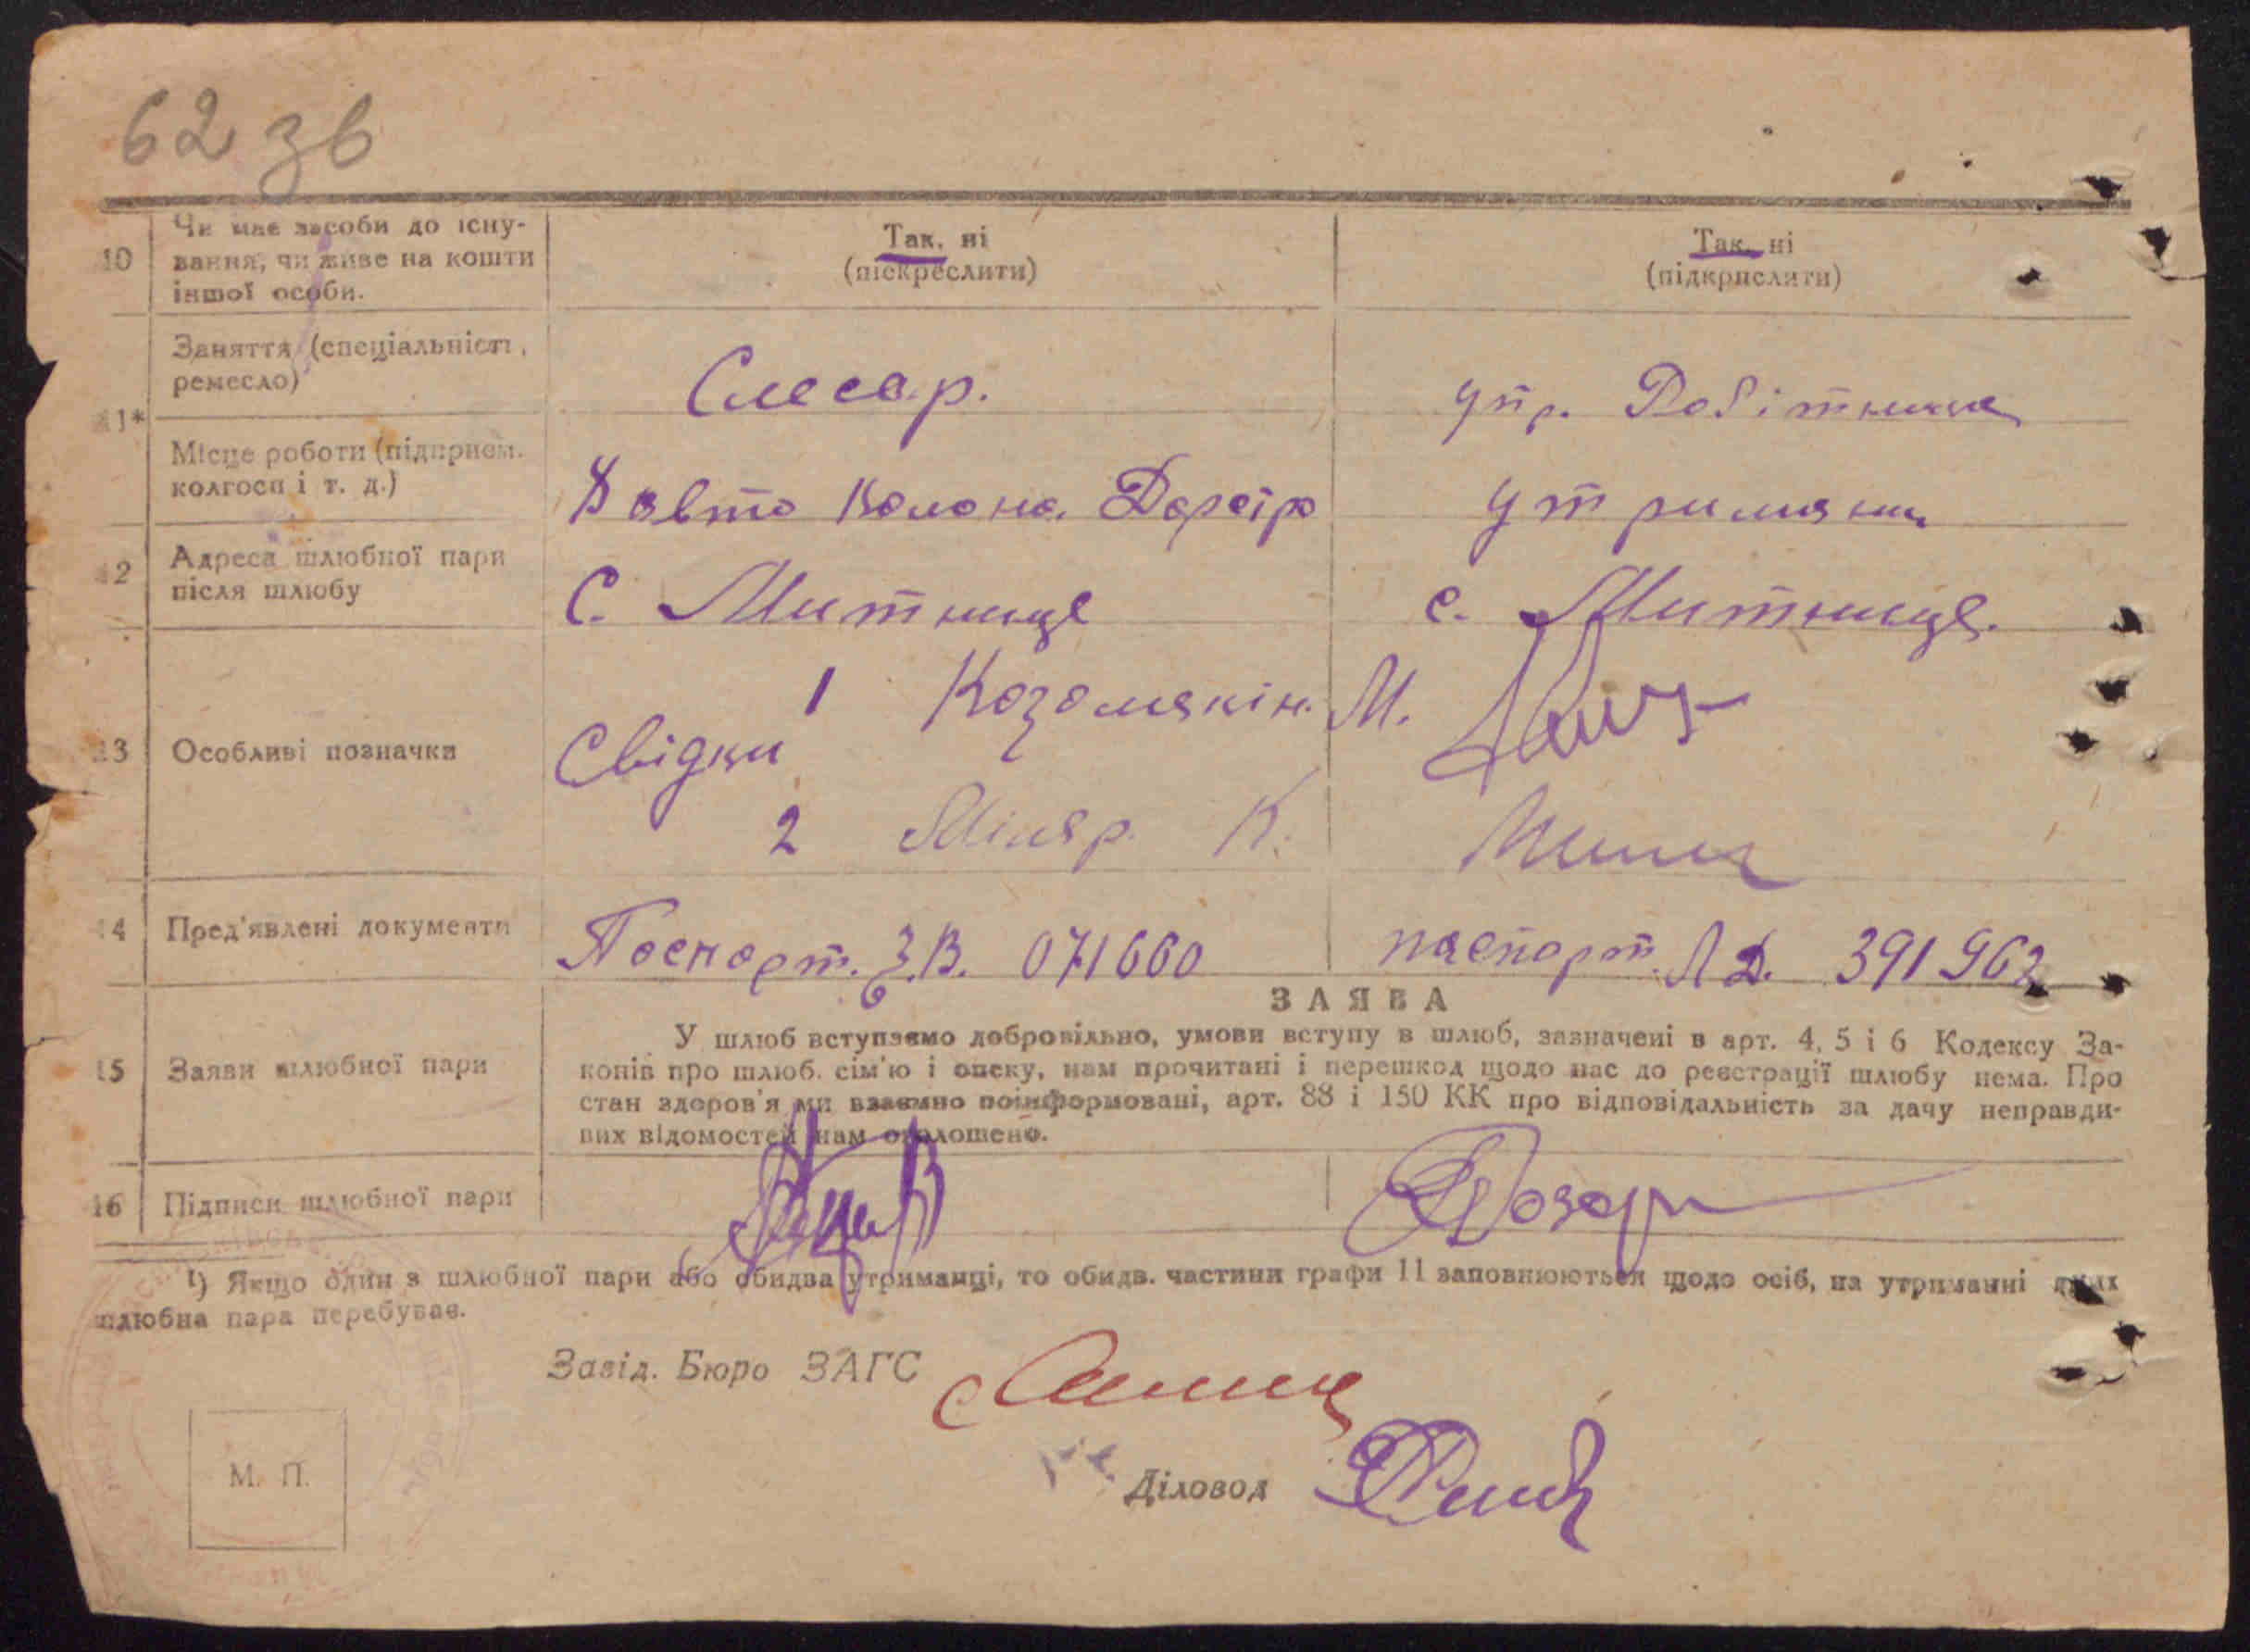 62 зв
10 Чи має засоби до існу-
вання, чи живе на кошти
іншої особи.
Так, ні
(піскреслити)
Так, ні
(підкрислити)
11* Заняття (спеціальність,
ремесло)
Слесар.
утр. Робітниця
Місце роботи (підприєм.
колгосп і т. д.)
Авто Колона
утриманн
12 Адреса шлюбної пари
після шлюбу
С. Митниця
с. Митниця.
13 Особливі позначки
Свідки
1 Козолякін. М.
2 Міляр. К.
14 Пред'явлені документи
Паспорт. З.В. 071660
паспорт. Л Д. 391962
ЗАЯВА
15 Заяви шлюбної пари
У шлюб вступаємо добровільно, умови вступу в шлюб, зазначені в арт. 4, 5 і 6 Кодексу За-
конів про шлюб. сім'ю і опеку, нам прочитані і перешкод щодо нас до реєстрації шлюбу нема. Про
стан здоров'я ми взаємно поінформовані, арт. 88 і 150 КК про відповідальність за дачу неправди-
вих відомостей нам оголошено.
16 Підписи шлюбної пари
1) Якщо один з шлюбної пари або обидва утриманці, то обидв. частини графи 11 заповнюються щодо осіб, на утриманні яких
шлюбна пара перебуває.
Завід. Бюро ЗАГС
Діловод
М. П.